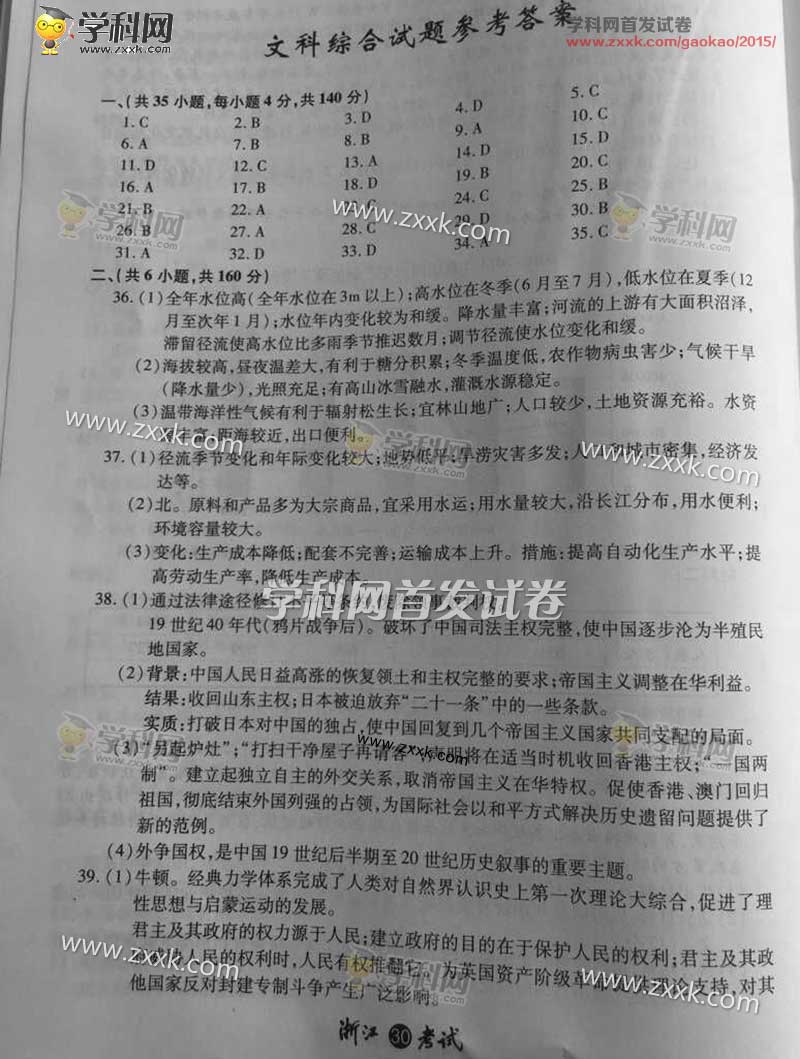 学科网
www.zxxk.com
学科网首发试卷
www.zxxk.com/gaokao/2015/
文科综合试题参考答案
一、(共35小题,每小题4分,共140分)
1. C 2. B 3. D 4. D 5. C
6. A 7. B 8. B 9. A 10. C
11. D 12. C 13. A 14. D 15. D
16. A 17. B 18. D 19. B 20. C
21. B 22. A C 24. C 25. B
26. B 27. A 28. C 29. D 30. B
31. A 32. D 33. D 34. A 35. C
二、(共6小题,共160分)
36. (1)全年水位高(全年水位在3m以上);高水位在冬季(6月至7月),低水位在夏季(12
月至次年1月);水位年内变化较为和缓。降水量丰富;河流的上游有大面积沼泽,
滞留径流使高水位比多雨季节推迟数月;调节径流使水位变化和缓。
(2)海拔较高,昼夜温差大,有利于糖分积累;冬季温度低,农作物病虫害少;气候干旱
(降水量少),光照充足;有高山冰雪融水,灌溉水源稳定。
(3)温带海洋性气候有利于辐射松生长;宜林山地广;人口较少,土地资源充裕。水资
丰富,距海较近,出口便利。
37. (1)径流季节变化和年际变化较大;地势低平;旱涝灾害多发;人口和城市密集,经济发
达等。
(2)北。原料和产品多为大宗商品,宜采用水运;用水量较大,沿长江分布,用水便利;
环境容量较大。
(3)变化:生产成本降低;配套不完善;运输成本上升。措施:提高自动化生产水平;提
高劳动生产率,降低生产成本。
38. (1)通过法律途径修
19世纪40年代(鸦片战争后)。破坏了中国司法主权完整,使中国逐步沦为半殖民
地国家。
(2)背景:中国人民日益高涨的恢复领土和主权完整的要求;帝国主义调整在华利益。
结果:收回山东主权;日本被迫放弃“二十一条”中的一些条款。
实质:打破日本对中国的独占,使中国回复到几个帝国主义国家共同支配的局面。
(3)“另起炉灶”;“打扫干净屋子再请客”;表明将在适当时机收回香港主权;“一国两
制”。建立起独立自主的外交关系,取消帝国主义在华特权。促使香港、澳门回归
祖国,彻底结束外国列强的占领,为国际社会以和平方式解决历史遗留问题提供了
新的范例。
(4)外争国权,是中国19世纪后半期至20世纪历史叙事的重要主题。
39. (1)牛顿。经典力学体系完成了人类对自然界认识史上第一次理论大综合,促进了理
性思想与启蒙运动的发展。
君主及其政府的权力源于人民;建立政府的目的在于保护人民的权利;君主及其政
人民的权利时,人民有权推翻它。为英国资产阶级革命 理论支持,对其
他国家反对封建专制斗争产生广泛影响。
浙江 30 考试